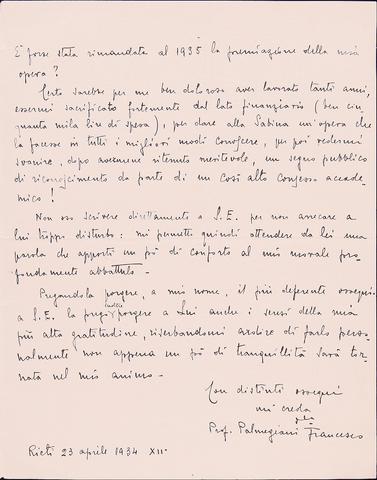 È forse stata rimandata al 1935 la premiazione della mia
opera?
Certo sarebbe per me ben doloroso aver lavorato tanti anni,
essermi sacrificato fortemente dal lato finanziario (ben cin
quanta mila lire di spesa), per dare alla Sabina un'opera che
la facesse in tutti i migliori modi conoscere, per poi vedermi
svanire, dopo avermene ritenuto meritevole, un segno pubblico
di riconoscimento da parte di un così alto Consesso accade-
mico!
Non oso scrivere direttamente a S.E. per non arrecare a
lui troppo disturbo: mi permetto quindi attendere da lei una
parola che apporti un pò di conforto al mio morale pro-
fondamente abbattuto -
Pregandola porgere, a mio nome, il più deferente ossequio
a S.E. la prego porgere a Lui anche i sensi della mia
più alta gratitudine, riserbandomi ardire di farlo perso-
nalmente non appena un pò di tranquillità sarà tor-
nata nel mio animo -
Con distinti ossequi
mi creda
Prof. Palmegiani Francesco
Rieti 23 aprile 1934 XII°